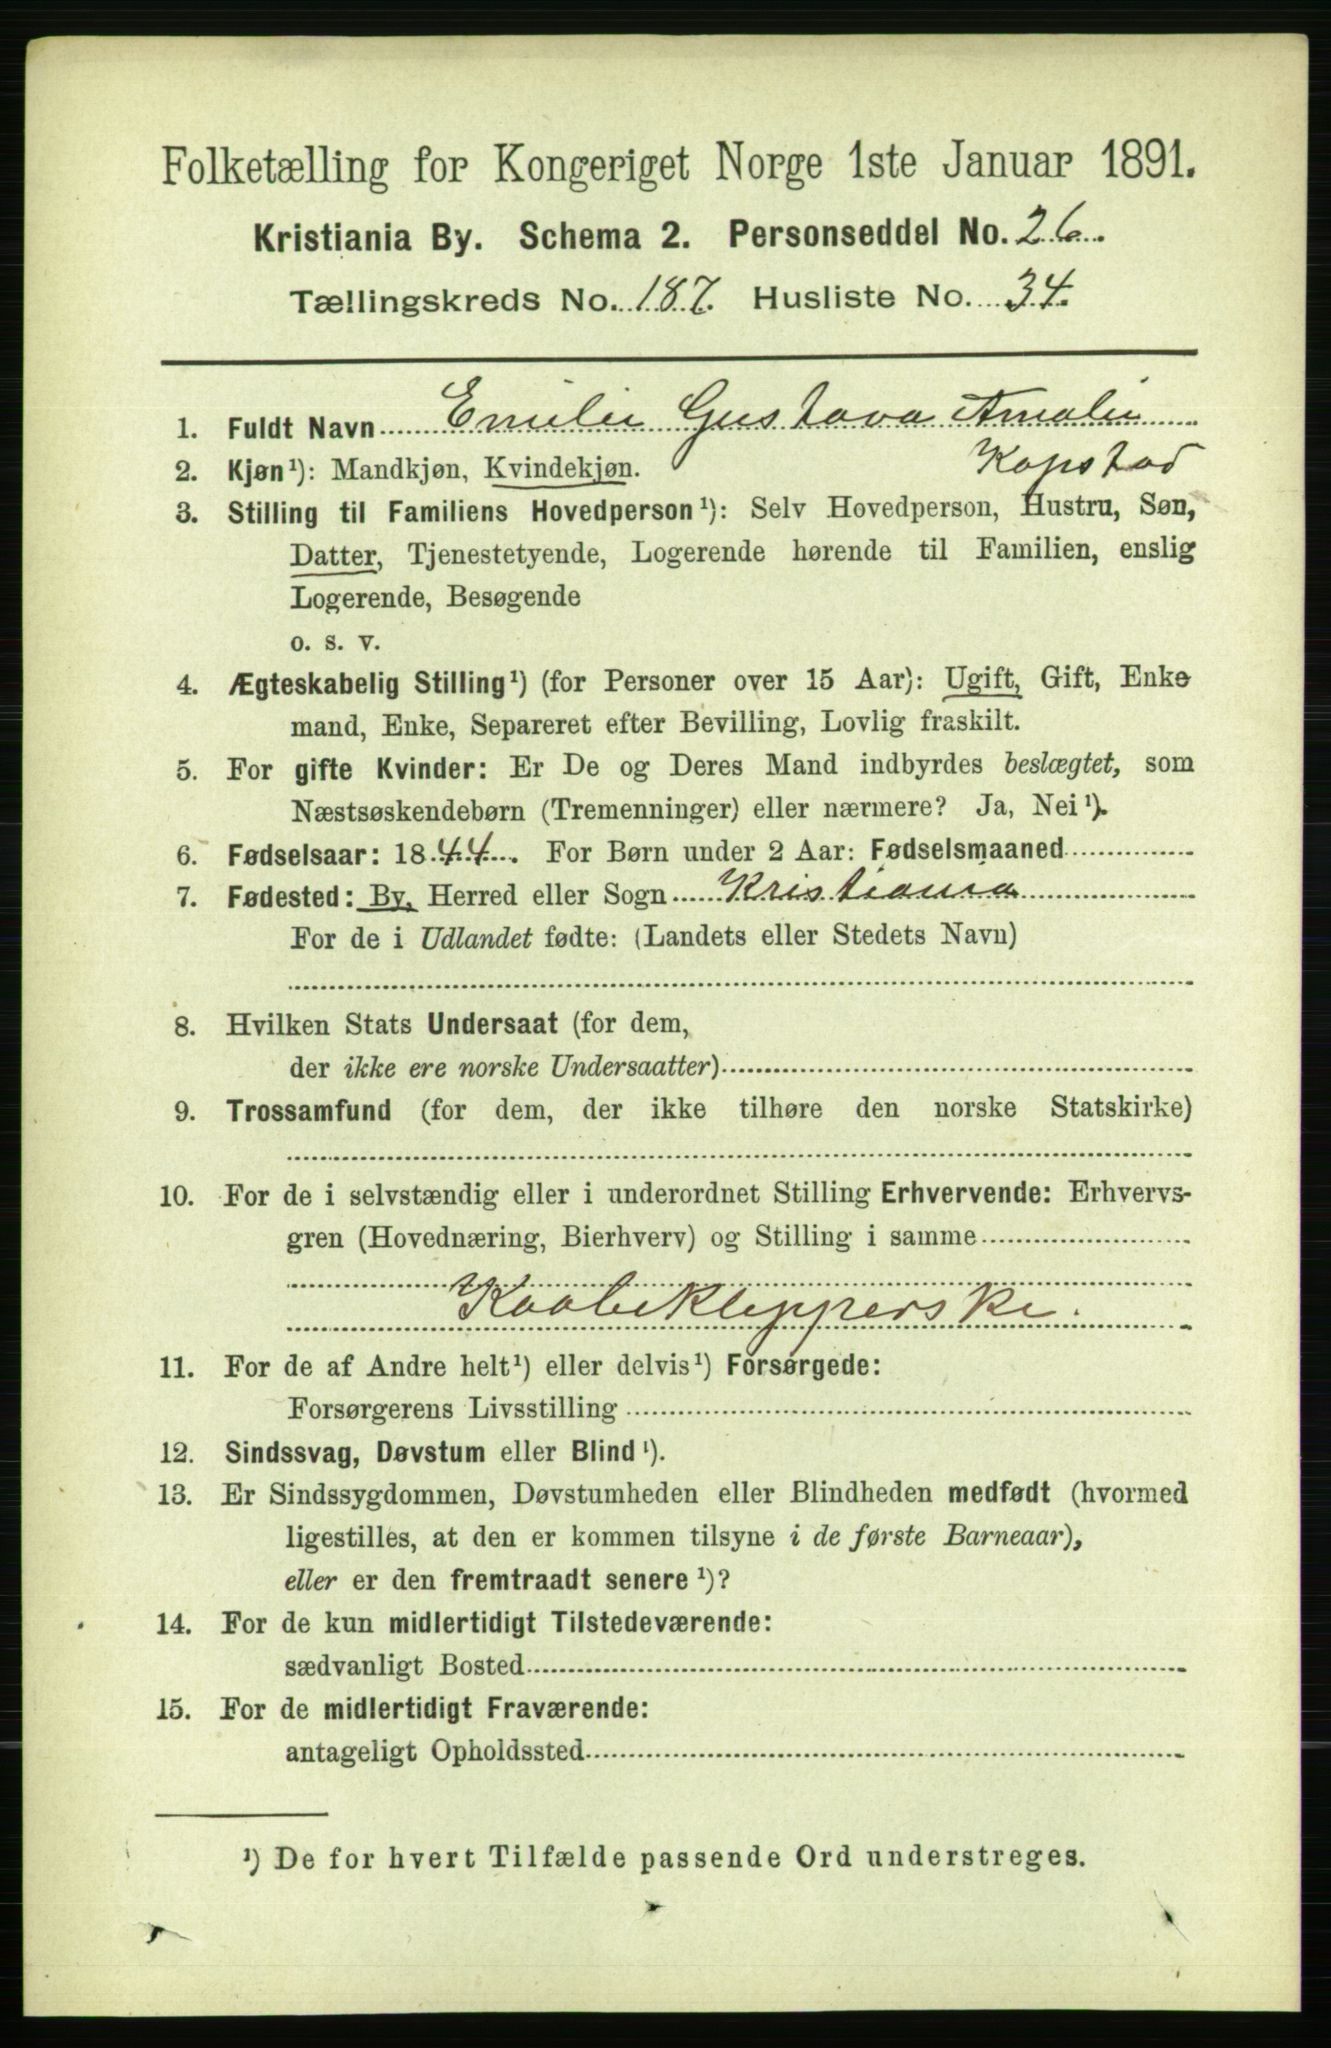 Folketælling for Kongeriget Norge 1ste Januar 1891.
Kristiania By. Schema 2. Personseddel No. 26.
Tællingskreds No. 187. Husliste No. 34.
1. Fuldt Navn Emilie Gustava Amalie
2. Kjøn¹): Mandkjøn, Kvindekjøn. Kopstad
3. Stilling til Familiens Hovedperson¹): Selv Hovedperson, Hustru, Søn,
Datter, Tjenestetyende, Logerende hørende til Familien, enslig
Logerende, Besøgende
o. s. v.
4. Ægteskabelig Stilling¹) (for Personer over 15 Aar): Ugift, Gift, Enke
mand, Enke, Separeret efter Bevilling, Lovlig fraskilt.
5. For gifte Kvinder: Er De og Deres Mand indbyrdes beslægtet, som
Næstsøskendebørn (Tremenninger) eller nærmere? Ja, Nei¹).
6. Fødselsaar: 1844. For Børn under 2 Aar: Fødselsmaaned
7. Fødested: By, Herred eller Sogn Kristiania
For de i Udlandet fødte: (Landets eller Stedets Navn)
8. Hvilken Stats Undersaat (for dem,
der ikke ere norske Undersaatter)
9. Trossamfund (for dem, der ikke tilhøre den norske Statskirke)
10. For de i selvstændig eller i underordnet Stilling Erhvervende: Erhvervs-
gren (Hovednæring, Bierhverv) og Stilling i samme
Kaabeklipperske.
11. For de af Andre helt¹) eller delvis¹) Forsørgede:
Forsørgerens Livsstilling
12. Sindssvag, Døvstum eller Blind¹).
13. Er Sindssygdommen, Døvstumheden eller Blindheden medfødt (hvormed
ligestilles, at den er kommen tilsyne i de første Barneaar),
eller er den fremtraadt senere¹)?
14. For de kun midlertidigt Tilstedeværende:
sædvanligt Bosted
15. For de midlertidigt Fraværende:
antageligt Opholdssted
¹) De for hvert Tilfælde passende Ord understreges.